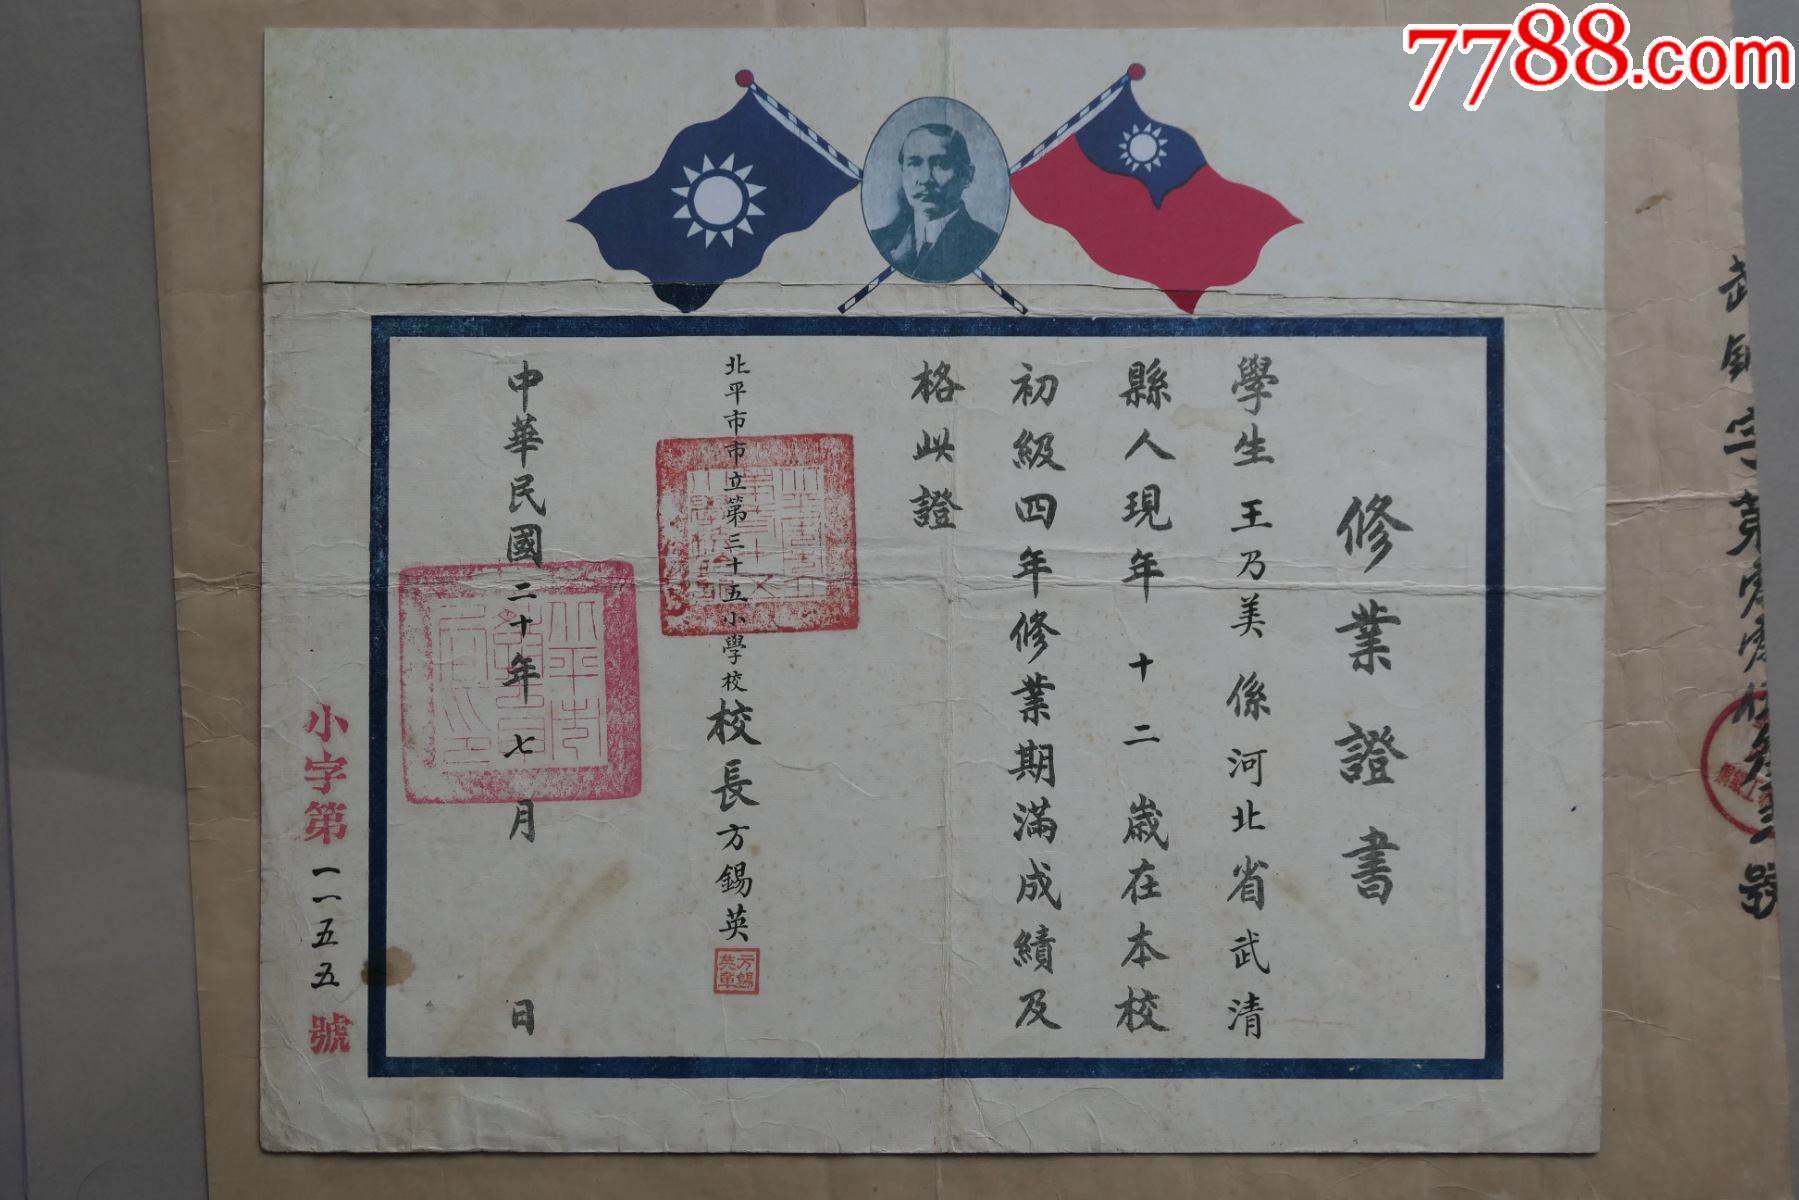 7788.com
修業證書
學生王乃美係河北省武清
縣人現年十二歲在本校
初級四年修業期滿成績及
格此證
北平市市立第三十五小學校校長方錫英
方錫英章
中華民國二十年七月 日
小字第一一五五號